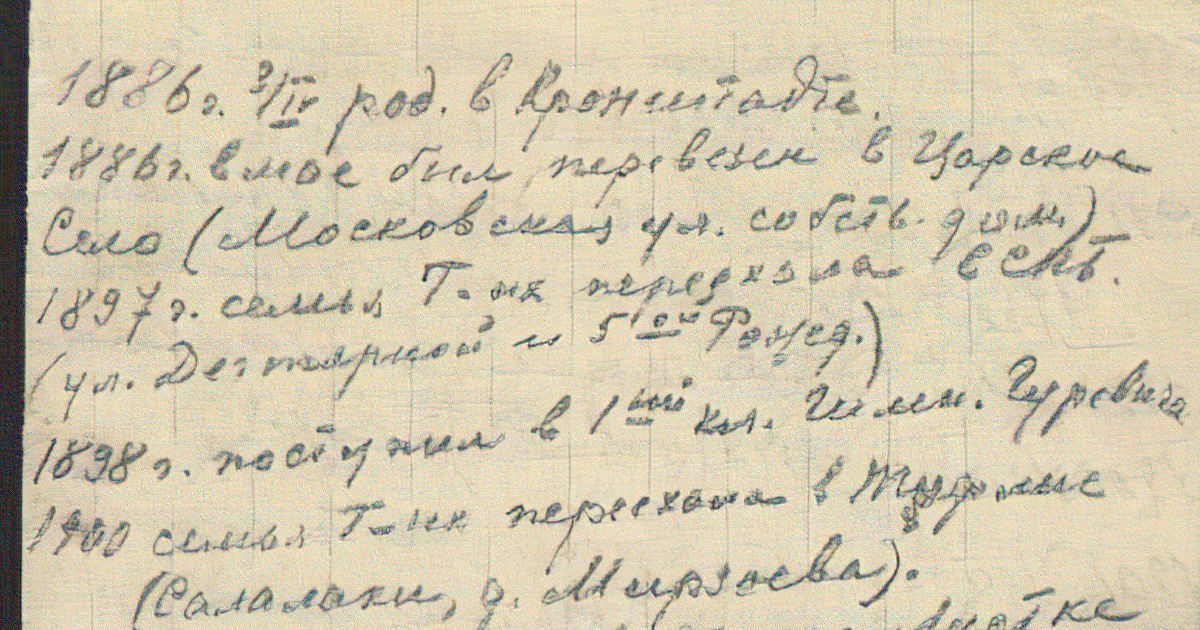 1886г. 3/IV род. в Кронштадте.
1886г. в мае был перевезен в Царское
Село (Московская ул. собств. дом)
1897г. семья Г-их переехала в СПб.
(ул. Дегтярной и 5ой Рожд.)
1898г. поступил в 1ый кл. Гимн. Гуревича
1900 семья Г-их переехала в Тифлис
(Сололаки, д. Мирзоева).